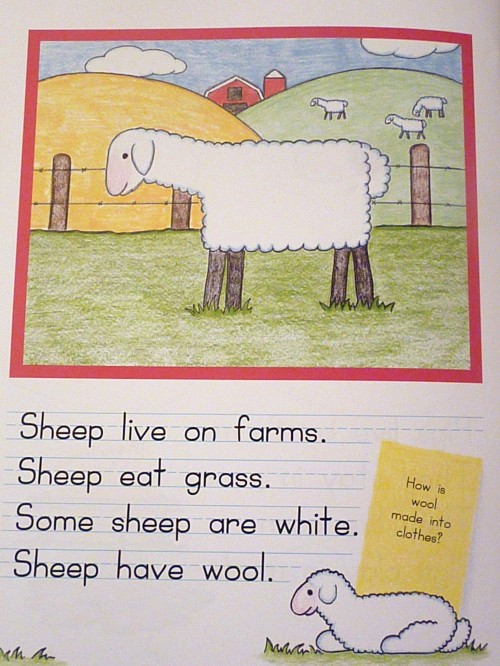 Sheep live on farms.
Sheep eat grass.
Some sheep are white.
Sheep have wool.
How is
wool
made into
clothes?